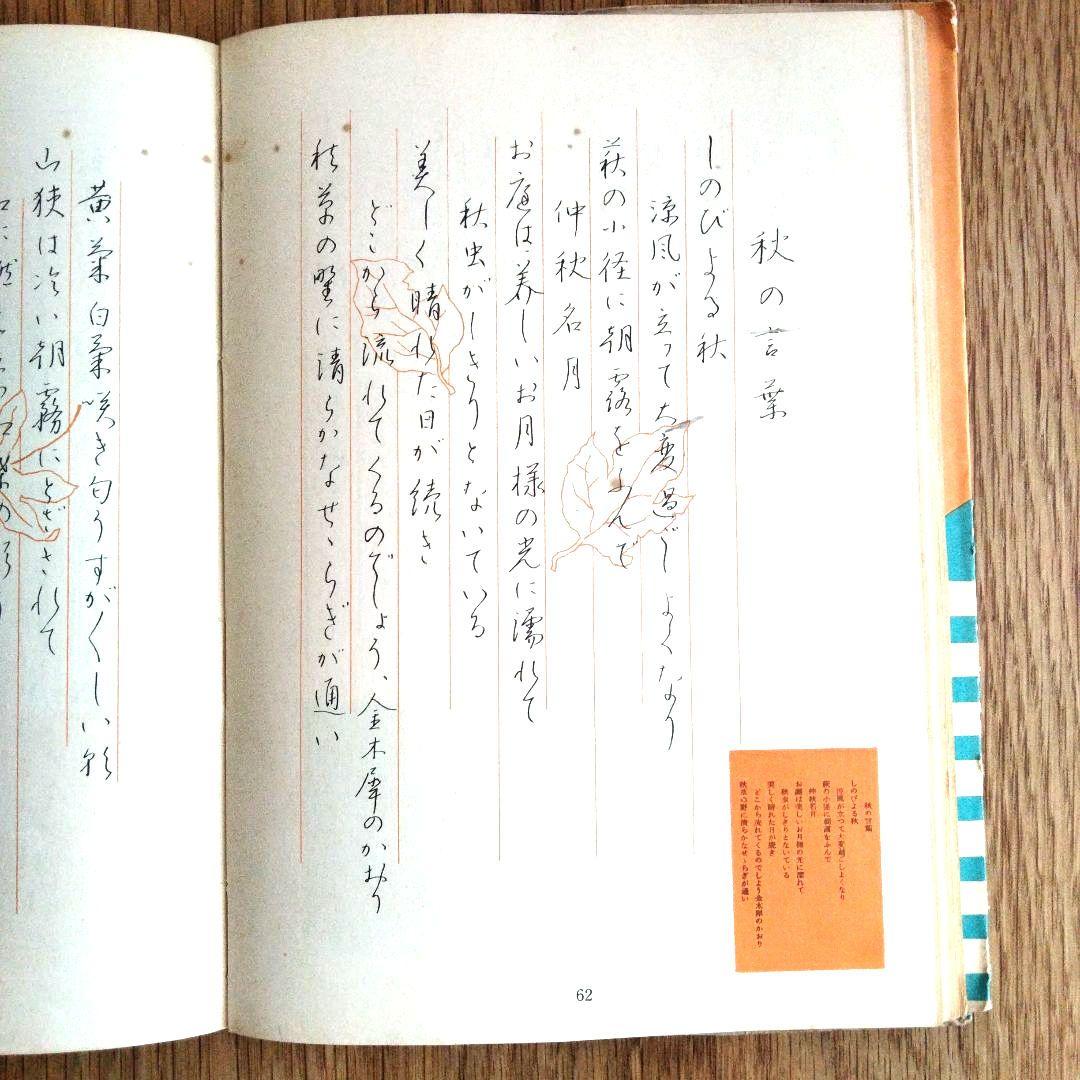 秋の言葉
しのびよる秋
涼風が立って大変過ごしよくなり
萩の小径に朝露をふんで
仲秋名月
お庭は美しいお月様の光に濡れて
秋虫がしきりとないている
美しく晴れた日が続き
どこから流れてくるのでしょう、金木犀のかおり
秋草の野に清らかなせゝらぎが通い
秋の言葉
しのびよる秋
涼風が立つて大変過ごしよくなり
萩の小径に朝露をふんで
仲秋名月
お庭は美しいお月様の光に濡れて
秋虫がしきりとないている
美しく晴れた日が続き
どこから流れてくるのでしよう金木犀のかおり
秋草の野に清らかなせゝらぎが通い
62
黄菊白菊咲き匂うすが〱しい朝
山狭は冷い朝霧にとざされて